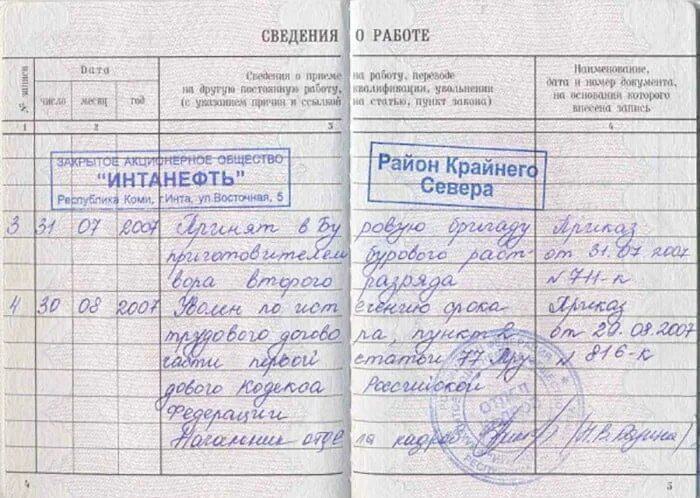 СВЕДЕНИЯ О РАБОТЕ
№ записи
Дата
число месяц год
Сведения о приеме на работу, переводе
на другую постоянную работу, квалификации, увольнении
(с указанием причин и ссылкой на статью, пункт закона)
Наименование,
дата и номер документа,
на основании которого
внесена запись
1 2 3 4
ЗАКРЫТОЕ АКЦИОНЕРНОЕ ОБЩЕСТВО
"ИНТАНЕФТЬ"
Республика Коми, г.Инта, ул.Восточная, 5
Район Крайнего
Севера
3 31 07 2007 Принят в буровую бригаду Приказ
приготовителем бурового раст- от 31.07 2007
вора второго разряда № 711-к
4 30 08 2007 Уволен по истечению срока Приказ
трудового договора, пункт 2 от 29.08.2007
части первой статьи 77 Тру № 816-к
дового Кодекса Российской
Федерации
Начальник отдела кадров
4 5